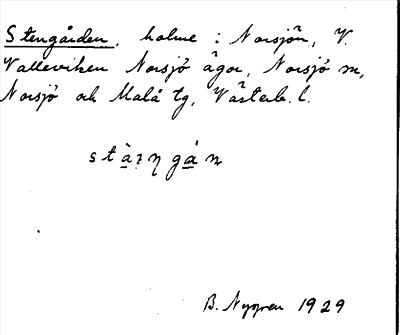 Stengården, holme i Norsjön, V.
Valleviken Norsjö ägor, Norsjö sn,
Norsjö och Malå tg, Västerb. l.
B. Nygren 1929